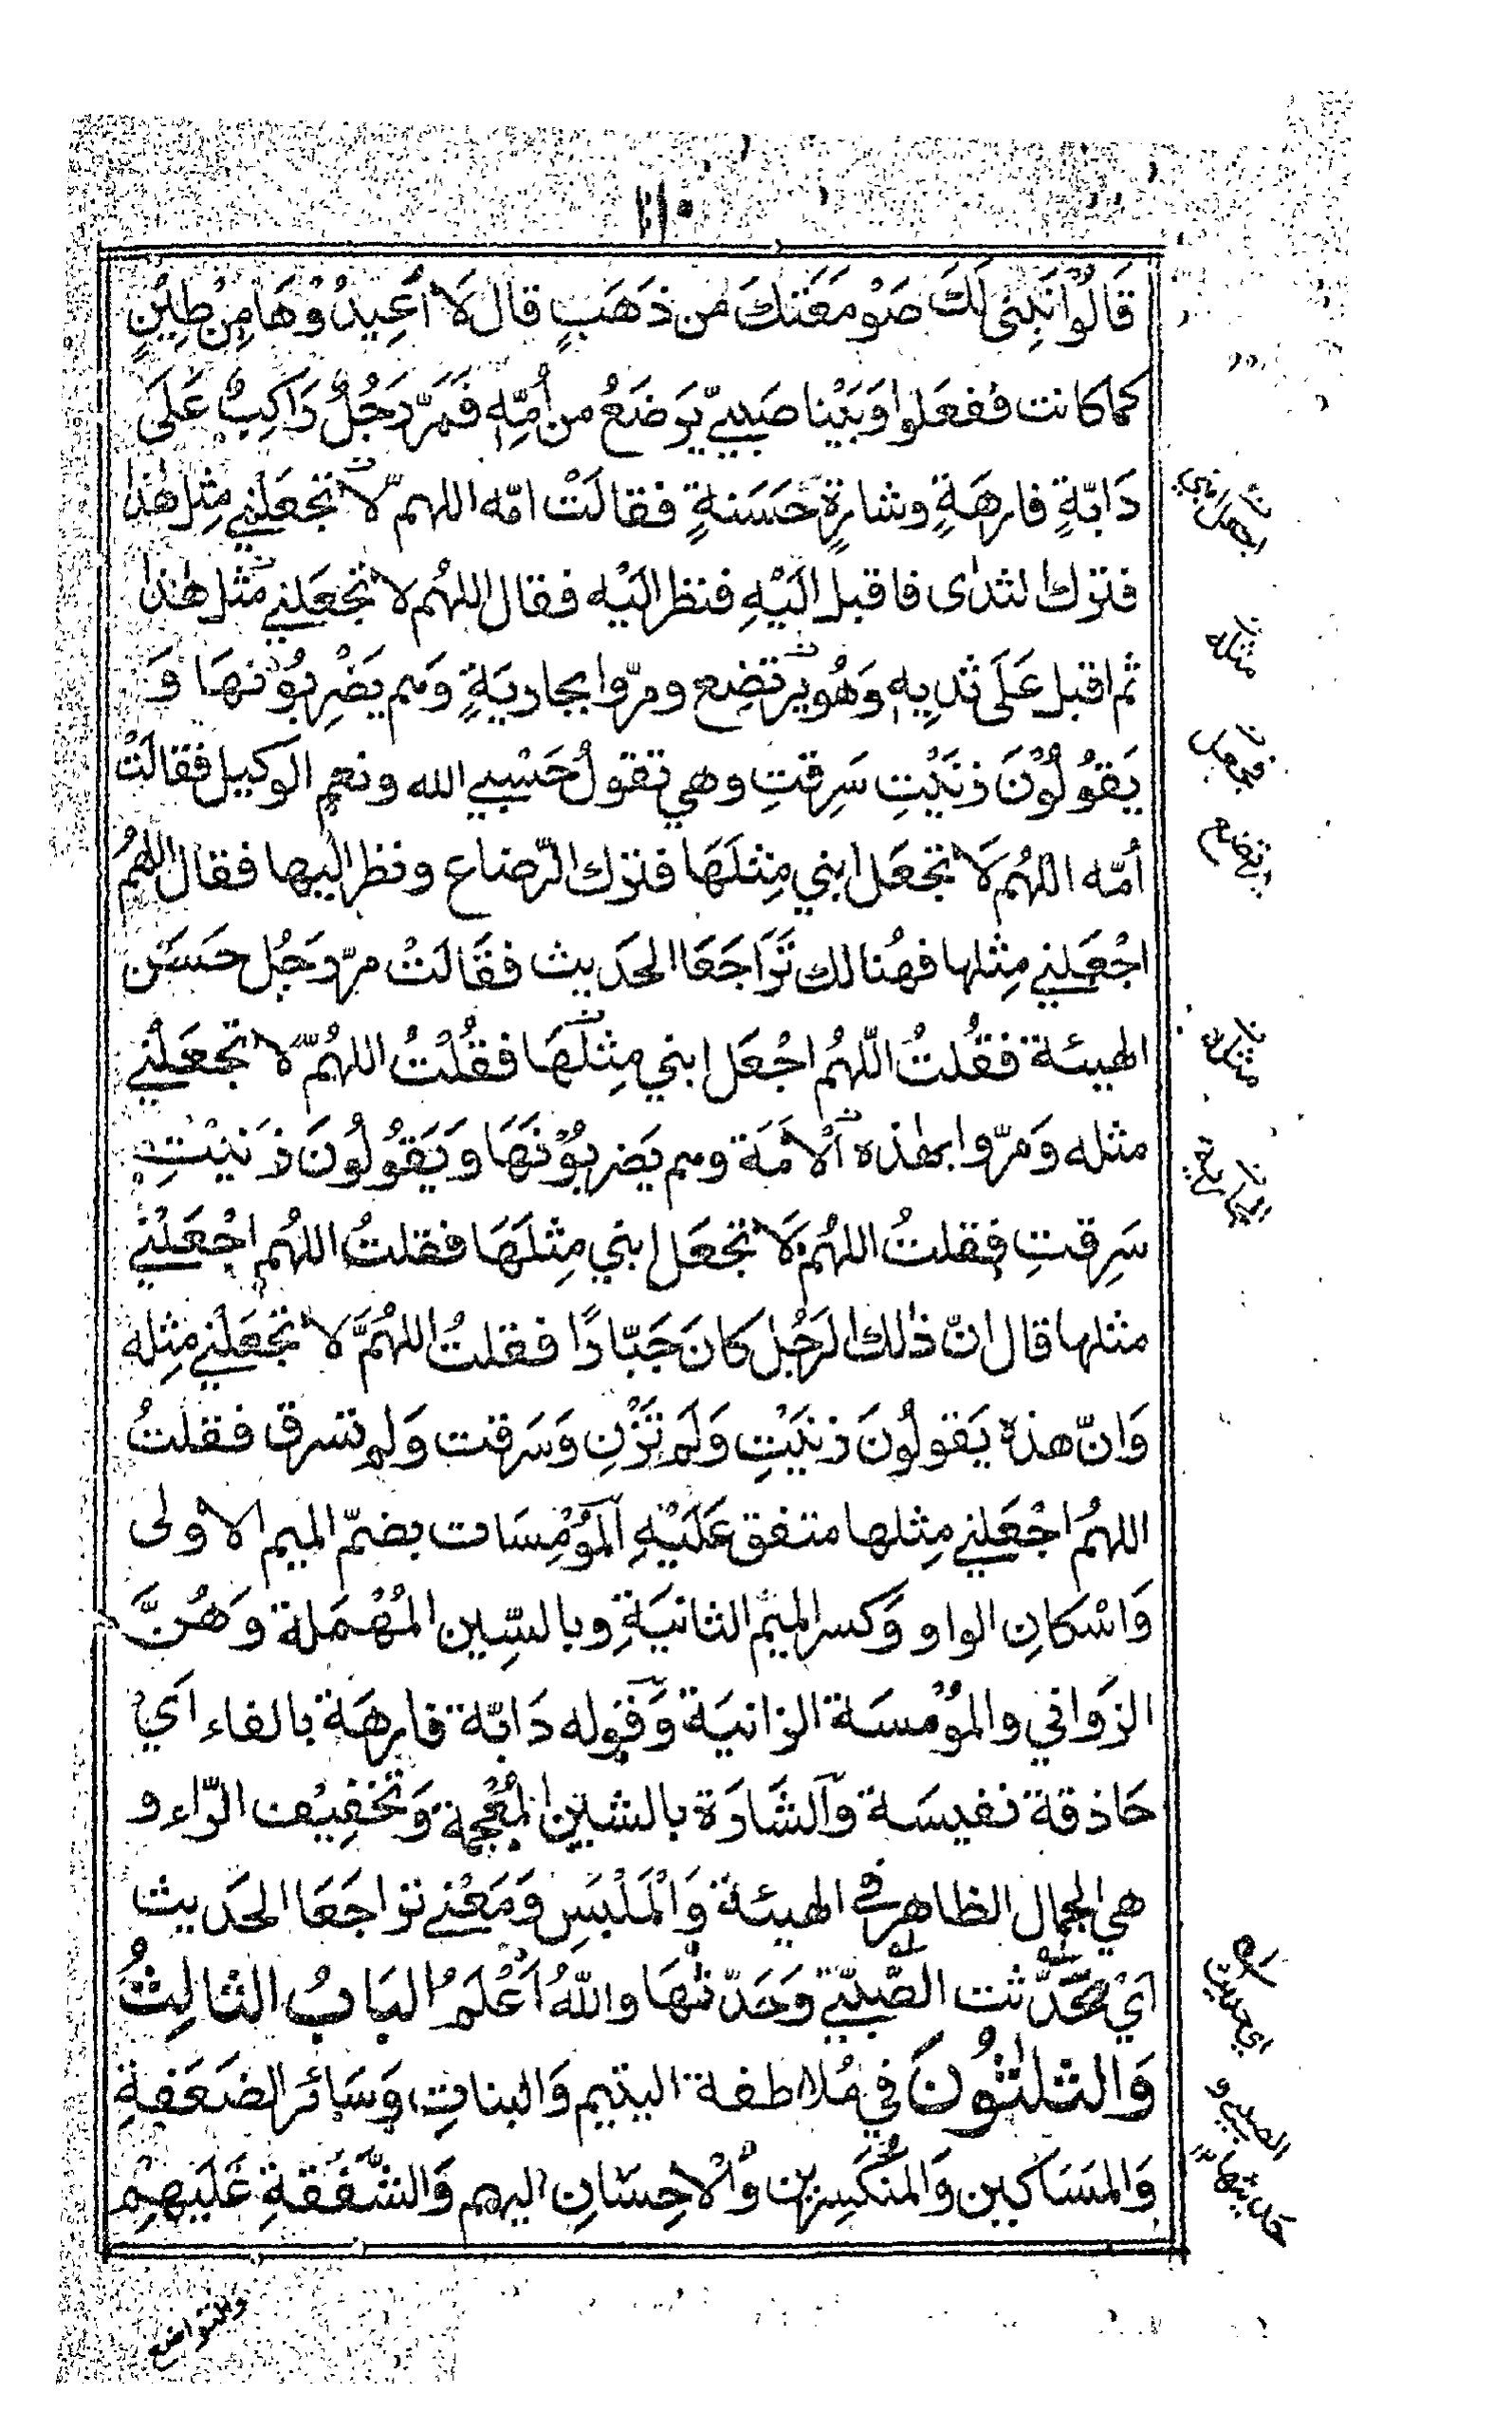 ١١٠
قَالُوْا نَبْنِىْ لَكَ صَوْمَعَتَكَ مِن ذَهَبٍ قال لَا أَعِيدُوْهَا مِنْ طِيْنٍ
كما كانت ففعلوا وَبَيْنا صَبِيٌّ يَرضَعُ من أُمِّهٖ فَمَرَّ رَجُلٌ رَاكِبٌ عَلَى
دَابّةٍ فارهَةٍ وشارةٍ حَسَنةٍ فقالَتْ امّه اللهمّ لا تجعَلْني مِثل هٰذا
فترك الثدى فاقبل الَيْهِ فنظر الَيْه فقال اللهُم لا تجْعَلني مثل هٰذا
ثم اقبل عَلَى ثديِهٖ وَهُو يرتضِع ومرّوا بجاريَةٍ وَهم يَضْرِبُوْنهَا وَ
يَقُولُوْنَ زنَيْتِ سَرِقتِ وهي تقولُ حَسْبِي الله ونعم الوكيل فقالَتْ
أمّه اللهُم لَا تجعَل ابني مِثلَهَا فترك الرّضاع ونظر اليها فقال اللهمُ
اجْعَلني مِثلها فهُنالك تَرَاجَعَا الحَديث فقَالَتْ مرّ رَجُل حَسَن
الهيئة فقُلتُ اللّهمُ اجْعَل ابني مِثلَهَا فقُلْتُ اللهُمّ لا تجعَلْني
مثله وَمرّوا بهٰذه الْأمَة وهم يَضربُوْنَهَا وَيَقُولُونَ زَنيْتِ
سَرِقتِ فقلتُ اللهُم لَا تجعَل ابني مِثلَهَا فقلتُ اللهُم اجْعَلْني
مثلها قال انّ ذٰلك الرَجُل كانَ جَبّارًا فقلتُ اللهُمَّ لا تجعَلْني مِثله
وَانّ هٰذهٖ يَقولُونَ زنَيْتِ وَلَم تَزْنِ وَسَرقت وَلم تسرق فقلتُ
اللهمُ اجْعَلني مِثلها متفق عَلَيْهِ اَلْمُوْمِسَات بضمّ الميم الاولى
وَاسْكانِ الواو وَكسر الميْم الثانيَةِ وبالسِّين المُهْمَلة وَهُنَّ
الزوَاني والمُوْمسَة الزانيَة وَقوله دَابّة فارهَة بالفاء اَيْ
حَاذقة نفيسَة وَالشَارَة بالشين المُعْجمة وَتخفِيْف الرّاء و
هي الجمال الظاهر في الهيئة وَالْمَلْبَسِ وَمَعْنٰى تراجَعَا الحَديث
اَيْ حَدَّثت الصَّبيّ وَحَدّثهَا واللهُ اَعْلَمُ البَابُ الثالِثُ
وَالثلٰثُونَ في مُلاطفة اليتيم وَالبناتِ وَسَائر الضَعَفةِ
وَالمسَاكين وَالمُنْكَسِرين وَالْاحِسَانِ اليهم وَالشَّفَقةِ عَلَيهِمْ
والتواضع
مثله
مثله